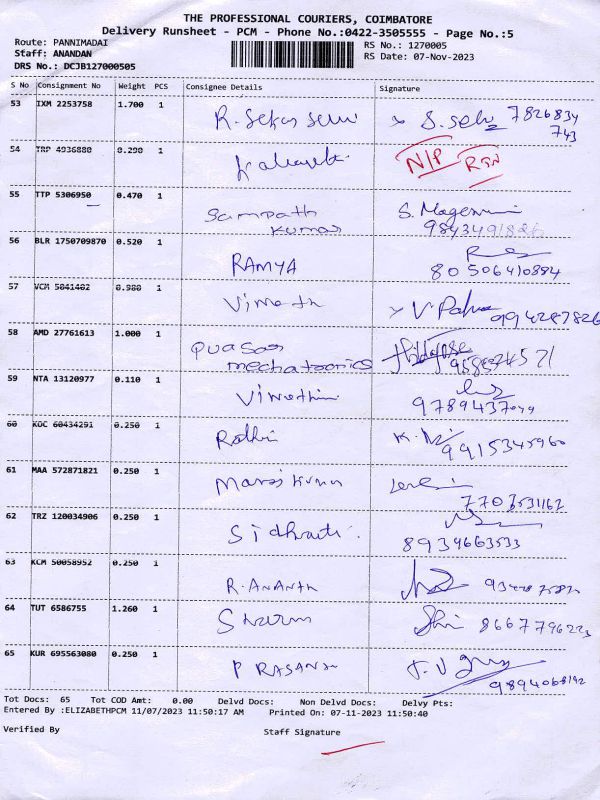 THE PROFESSIONAL COURIERS, COIMBATORE
Delivery Runsheet - PCM - Phone No.:0422-3505555 - Page No.:5
Route: PANNIMADAI
RS No.: 1270005
Staff: ANANDAN
RS Date: 07-Nov-2023
DRS No.: DCJB127000505
S No Consignment No Weight PCS Consignee Details Signature
53 IXM 2253758 1.700 1 7826834
743
54 TRP 4936880 0.290 1 N/P RTN
55 TTP 5306950 0.470 1 Sampath Kumar S. 9843491826
56 BLR 1750709870 0.520 1 RAMYA 80506410884
57 VCM 5041402 0.980 1 Vinoth 9994287826
58 AMD 27761613 1.000 1 Quasar mechatronics
59 NTA 13120977 0.110 1
60 KOC 60434291 0.250 1 9915345960
61 MAA 572871821 0.250 1 Manoj Kumar
62 TRZ 120034906 0.250 1 8934663533
63 KCM 50058952 0.250 1 R. ANANTH
64 TUT 6586755 1.260 1 8667796223
65 KUR 695563080 0.250 1 PRASANTH 9894068192
Tot Docs: 65 Tot COD Amt: 0.00 Delvd Docs: Non Delvd Docs: Delvy Pts:
Entered By :ELIZABETHPCM 11/07/2023 11:50:17 AM Printed On: 07-11-2023 11:50:40
Verified By Staff Signature